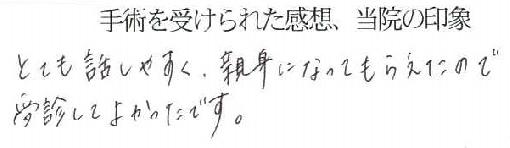 手術を受けられた感想、当院の印象
とても話しやすく、親身になってもらえたので
受診してよかったです。